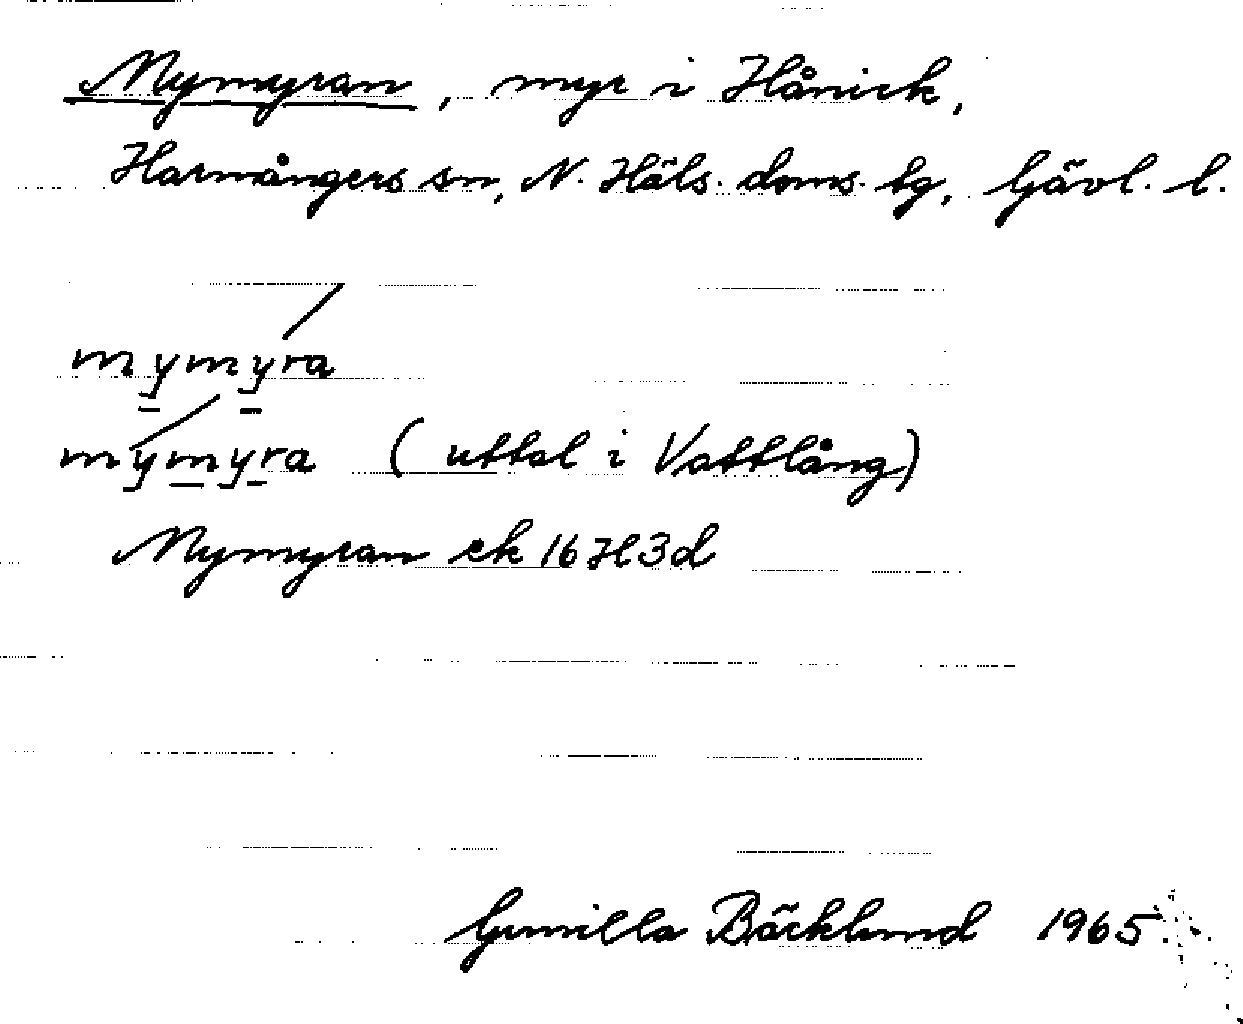 Mymyran, myr i Hånick,
Harmångers sn, N. Häls. doms. tg, Gävl. l.
mymyra
mymyra (uttal i Vattlång)
Mymyran ek 16H3d
Gunilla Bäcklund 1965